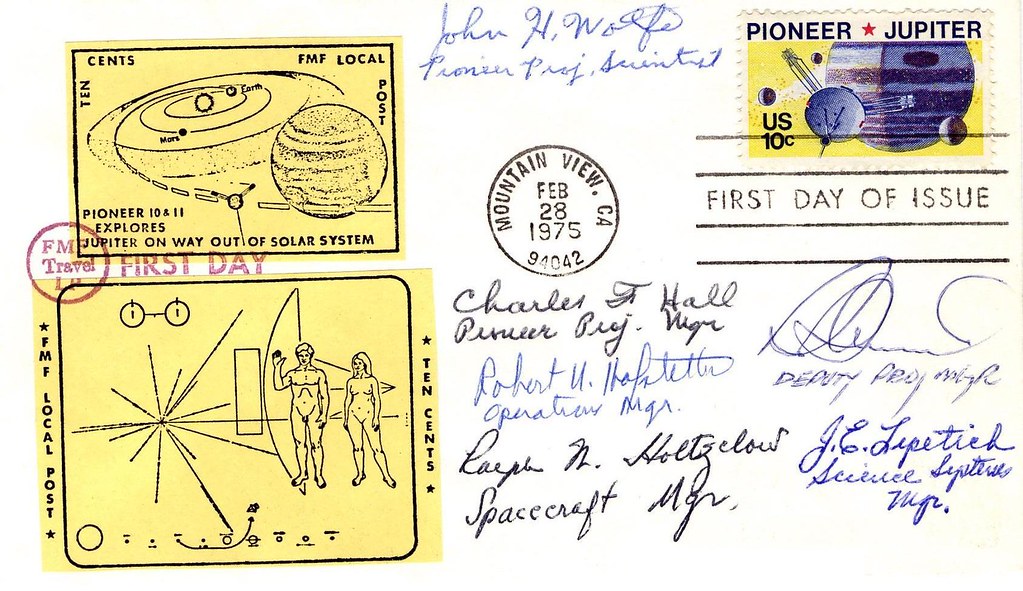 John H. Wolfe
Pioneer Proj. Scientist
PIONEER ★ JUPITER
US
10c
TEN CENTS
FMF LOCAL POST
Earth
Mars
PIONEER 10 & 11
EXPLORES
JUPITER ON WAY OUT OF SOLAR SYSTEM
MOUNTAIN VIEW, CA
FEB
28
1975
94042
FIRST DAY OF ISSUE
FMF
Travel
FIRST DAY
★ FMF LOCAL POST ★
★ TEN CENTS ★
Charles F Hall
Pioneer Proj. Mgr
DEPUTY PROJ MGR
Robert U. Hofstetter
Operations Mgr.
Ralph W. Holtzclaw
Spacecraft Mgr.
J.E. Lepetich
Science Systems
Mgr.